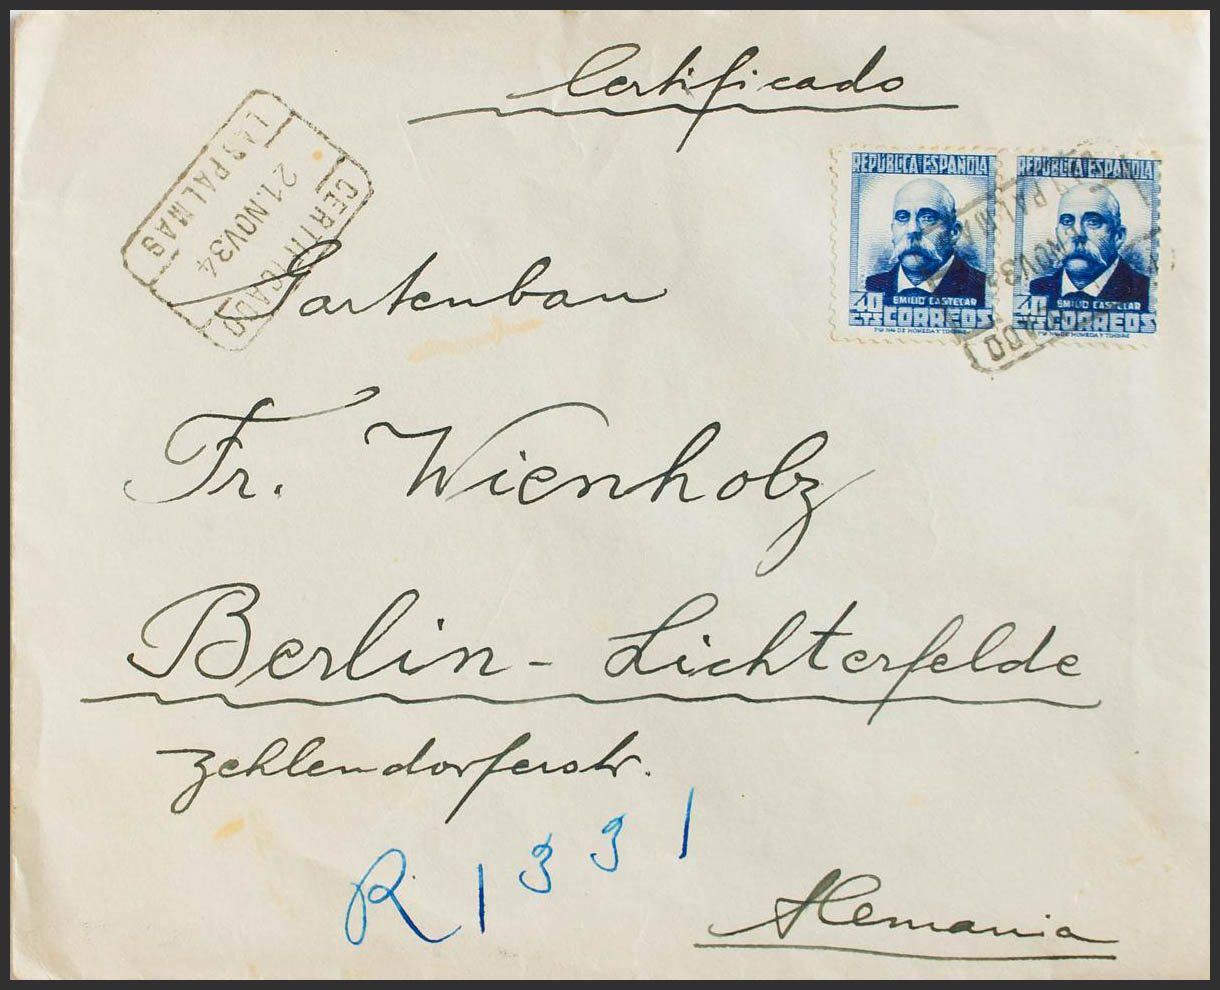 Certificado
LAS PALMAS
21.NOV.34
CERTIFICADO
REPÚBLICA ESPAÑOLA
EMILIO CASTELAR
40 CTS CORREOS
REPÚBLICA ESPAÑOLA
EMILIO CASTELAR
40 CTS CORREOS
Gartenbau
Fr. Wienholz
Berlin - Lichterfelde
Zehlendorferstr.
R 1331
Alemania